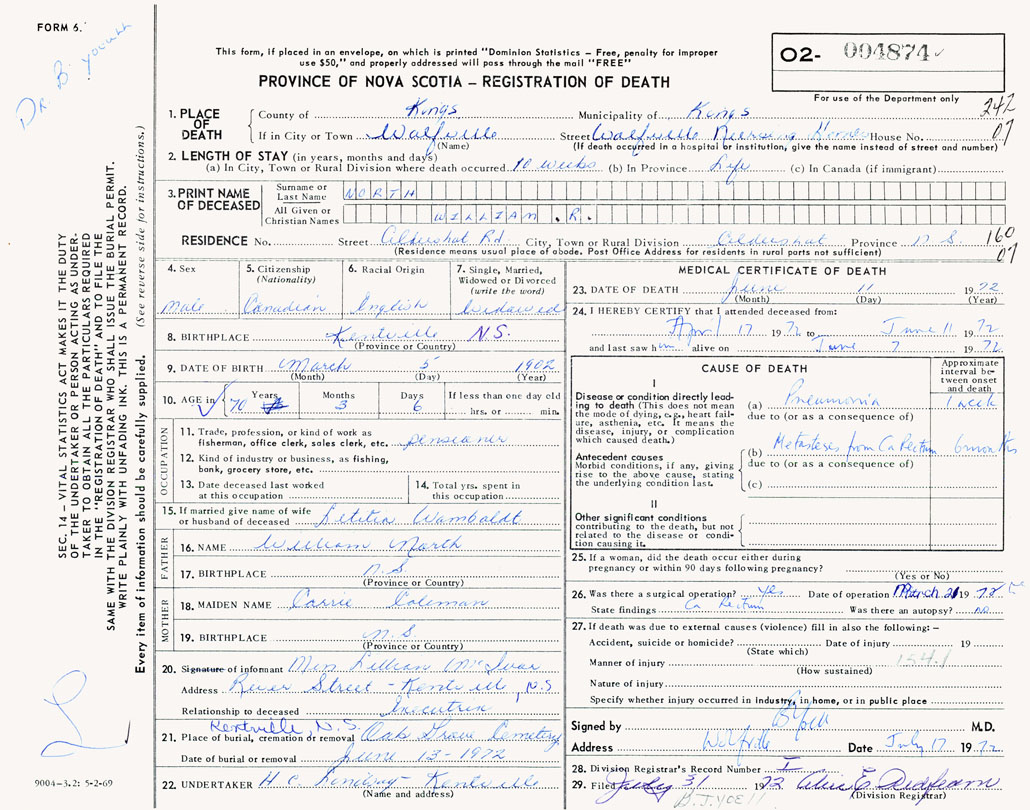 FORM 6.
Dr. B
This form, if placed in an envelope, on which is printed "Dominion Statistics – Free, penalty for improper
use $50," and properly addressed will pass through the mail "FREE"
PROVINCE OF NOVA SCOTIA – REGISTRATION OF DEATH
O2- 004874
For use of the Department only
242
07
1. PLACE OF DEATH
County of Kings Municipality of Kings
If in City or Town Wolfville Street Wolfville Nursing Homes House No.
(Name) (If death occurred in a hospital or institution, give the name instead of street and number)
2. LENGTH OF STAY (in years, months and days)
(a) In City, Town or Rural Division where death occurred 10 weeks (b) In Province Life (c) In Canada (if immigrant)
3. PRINT NAME OF DECEASED
Surname or Last Name NORTH
All Given or Christian Names WILLIAM . R.
RESIDENCE No. Street Aldershot Rd City, Town or Rural Division Aldershot Province N S. 160
(Residence means usual place of abode. Post Office Address for residents in rural parts not sufficient) 07
4. Sex Male
5. Citizenship (Nationality) Canadian
6. Racial Origin English
7. Single, Married, Widowed or Divorced (write the word) widowed
8. BIRTHPLACE Kentville N.S.
(Province or Country)
9. DATE OF BIRTH March 5 1902
(Month) (Day) (Year)
10. AGE in Years 70 Months 3 Days 6 If less than one day old hrs. or min.
OCCUPATION
11. Trade, profession, or kind of work as
fisherman, office clerk, sales clerk, etc. pensioner
12. Kind of industry or business, as fishing,
bank, grocery store, etc.
13. Date deceased last worked
at this occupation
14. Total yrs. spent in
this occupation
15. If married give name of wife
or husband of deceased Letitia Wamboldt
FATHER
16. NAME William North
17. BIRTHPLACE N.S
(Province or Country)
MOTHER
18. MAIDEN NAME Carrie Coleman
19. BIRTHPLACE N.S
(Province or Country)
20. Signature of informant Lillian
Address River Street - Kentville, N.S
Relationship to deceased Executrix
Kentville, N.S.
21. Place of burial, cremation or removal Oak Grove Cemetery
Date of burial or removal June 13 - 1972
22. UNDERTAKER H C Lindsay - Kentville
(Name and address)
MEDICAL CERTIFICATE OF DEATH
23. DATE OF DEATH June 11 1972
(Month) (Day) (Year)
24. I HEREBY CERTIFY that I attended deceased from:
April 17 1972 to June 11 1972
and last saw him alive on June 7 1972
CAUSE OF DEATH
Approximate interval between onset and death
I
Disease or condition directly leading to death (This does not mean the mode of dying, e.g., heart failure, asthenia, etc. It means the disease, injury, or complication which caused death.)
(a) Pneumonia 1 week
due to (or as a consequence of)
Antecedent causes
Morbid conditions, if any, giving rise to the above cause, stating the underlying condition last.
(b) Metastases from Ca Rectum 6 months
due to (or as a consequence of)
(c)
II
Other significant conditions
contributing to the death, but not related to the disease or condition causing it.
25. If a woman, did the death occur either during
pregnancy or within 90 days following pregnancy?
(Yes or No)
26. Was there a surgical operation? Yes Date of operation March 21 1972
State findings Ca Rectum Was there an autopsy? no
27. If death was due to external causes (violence) fill in also the following: –
Accident, suicide or homicide? Date of injury 19
(State which)
Manner of injury 154.1
(How sustained)
Nature of injury
Specify whether injury occurred in industry, in home, or in public place
Signed by M.D.
Address Wolfville Date July 17 1972
28. Division Registrar's Record Number
29. Filed July 31 1972 E.
(Division Registrar)
SEC. 14 – VITAL STATISTICS ACT MAKES IT THE DUTY
OF THE UNDERTAKER OR PERSON ACTING AS UNDER-
TAKER TO OBTAIN ALL THE PARTICULARS REQUIRED
IN THE "REGISTRATION OF DEATH" AND TO FILE THE
SAME WITH THE DIVISION REGISTRAR WHO SHALL ISSUE THE BURIAL PERMIT.
WRITE PLAINLY WITH UNFADING INK. THIS IS A PERMANENT RECORD.
Every item of information should be carefully supplied. (See reverse side for instructions.)
9004–3.2: 5-2-69